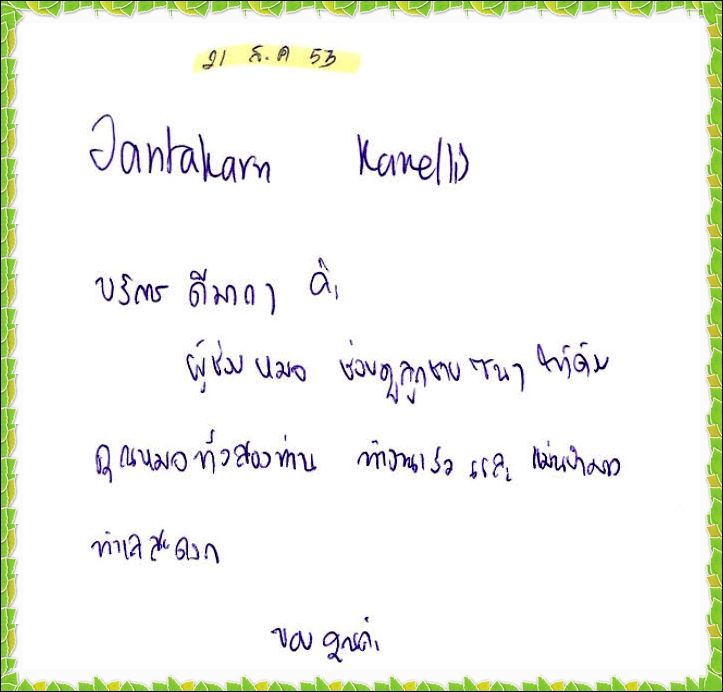 21 ธ.ค 53
Jantakarn Kanellis
บริการ ดีมากๆ ค่ะ
ผู้ช่วยหมอ ช่วยดูลูกชาย ให้ด้วย
คุณหมอทั้งสองท่าน ทำงานเร็ว และ แม่นยำมาก
ทำเลสะดวก
ขอบคุณค่ะ